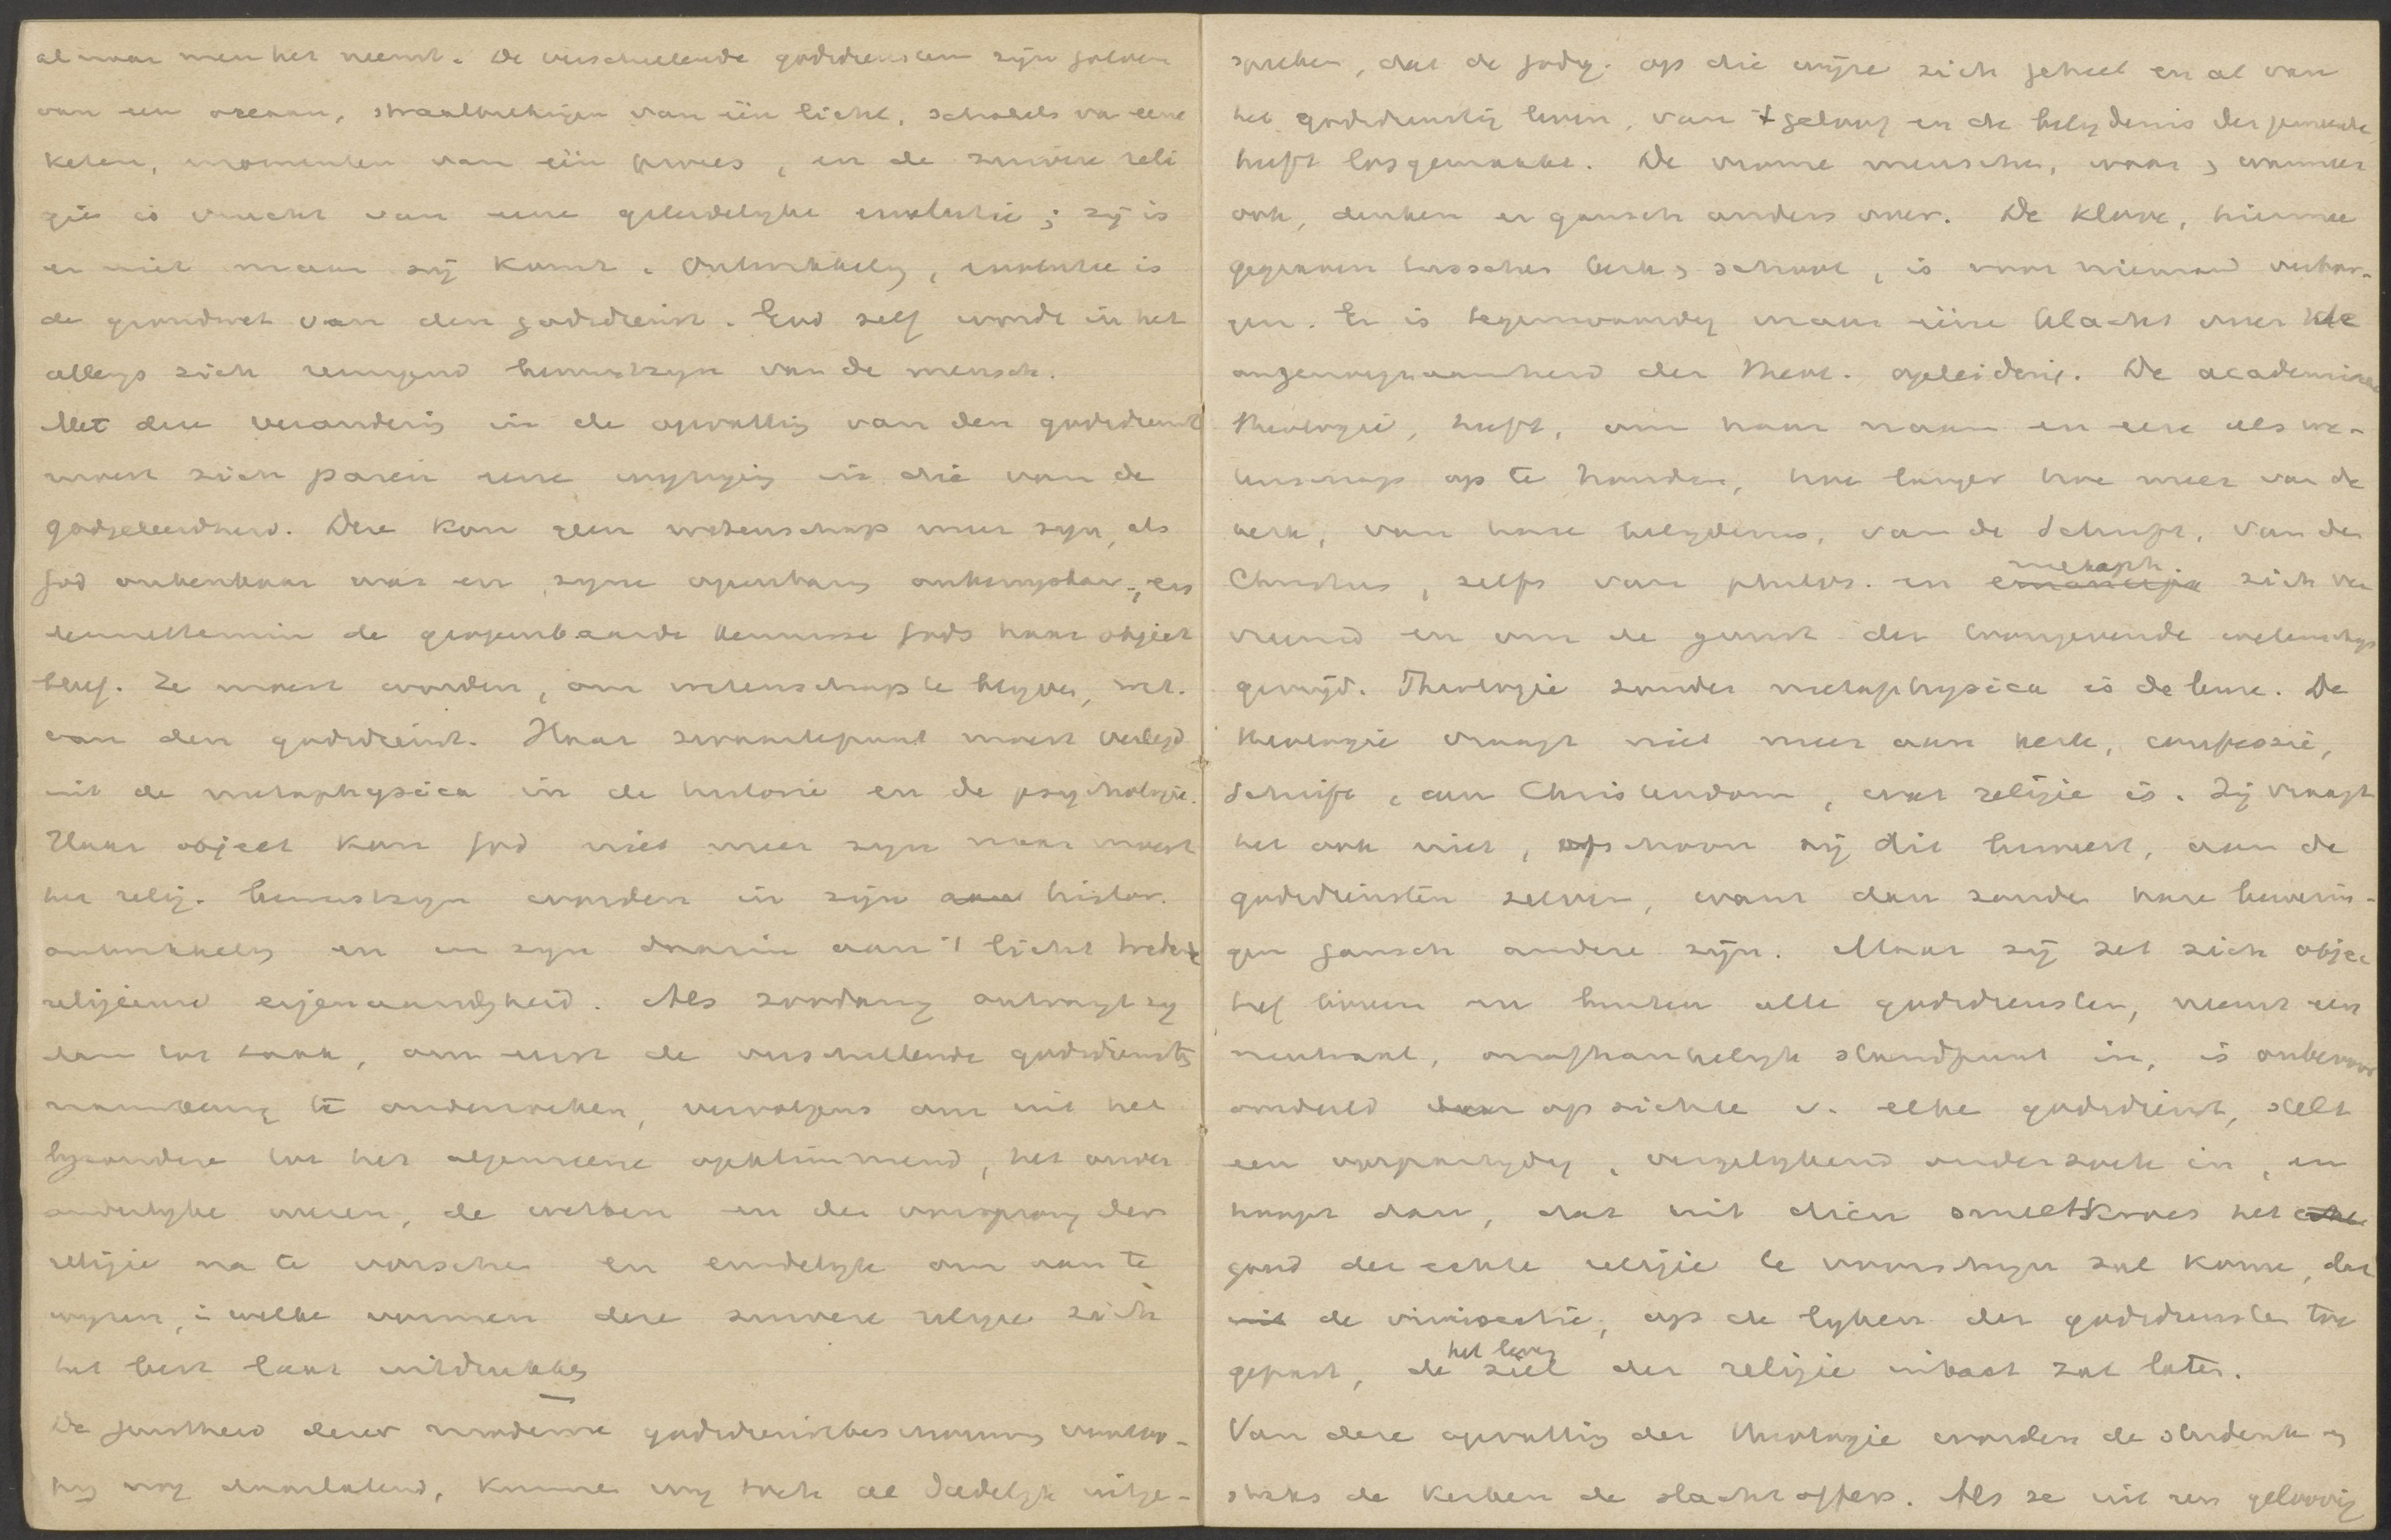 al naar men het neemt. De verschillende godsdiensten zijn golven
van een oceaan, straalbrekingen van één licht, schakels van eene
keten, momenten van één proces, en de zuivere reli
gie is vrucht van eene geleidelyke evolutie; zij is
er niet maar zij komt. Ontwikkeling, evolutie is
de grondwet van den godsdienst. God zelf wordt in het
allengs zich reinigend bewustzyn van de mensch.
Met deze verandering in de opvatting van den godsdienst
moest zich paren eene wyziging in die van de
godgeleerdheid. Deze kon geen wetenschap meer zyn, als
God onkenbaar was en zyne openbaring onbewysbaar, en
desniettemin de geopenbaarde kennisse Gods haar object
bleef. Ze moest worden, om wetenschap te blyven, wet.
van den godsdienst. Haar zwaartepunt moest verlegd
uit de metaphysica in de historie en de psychologie.
Haar object kon God niet meer zyn maar moest
het relig. bewustzyn worden in zijn histor.
ontwikkeling en in zyn daarin aan 't licht tredend
religieuse eigenaardigheid. Als zoodanig ontvangt zy
dan tot taak, om eerst de verschillende godsdiensten
nauwkeurig te onderzoeken, vervolgens om uit het
byzondere tot het algemeene opklimmend, het onver
anderlyke wezen, de wetten en den oorsprong der
religie na te vorschen en eindelyk om aan te
wyzen, in welke vormen deze zuivere religie zich
het best laat uitdrukken
De juistheid dezer moderne godsdienstbeschouwing voorloo-
pig nog daarlatend, kunnen wy toch al dadelyk uitge-
spreken, dat de godg. op die wijze zich geheel en al van
het godsdienstig leven, van 't geloof en de belydenis der gemeente
heeft losgemaakt. De vrome menschen, waar en wanneer
ook, denken er gansch anders over. De kloove, hiermee
gegeven tusschen kerk en school, is voor niemand verbor-
gen. Er is tegenwoordig maar ééne klacht over de
ongenoegzaamheid der theol. opleiding. De academische
theologie, heeft, om haar naam en eere als we-
tenschap op te houden, hoe langer hoe meer van de
kerk, van hare belydenis, van de Schrift, van den
Christus, zelfs van philos. en metaph. zich ver
vreemd en om de gunst der toongevende wetenschap
gevrijd. Theologie zonder metaphysica is de leuze. De
theologie vraagt niet meer aan kerk, confessie,
Schrift, aan Christendom, wat religie is. Zij vraagt
het ook niet, ofschoon zij dit beweert, aan de
godsdiensten zelven, want dan zouden hare bewerin-
gen gansch andere zijn. Maar zij zet zich objec
tief binnen en buiten alle godsdiensten, neemt een
neutraal, onafhankelyk standpunt in, is onbevoor
oordeeld op zichte v. elke godsdienst, stelt
een onpartydig, vergelykend onderzoek in, en
hoopt dan, dat uit dien smeltkroes het
goud der echte religie te voorschyn zal komen, dat
de vivisectie, op de lyken der godsdiensten toe
gepast, het leven
de ziel der religie uitbaat zal laten.
Van deze opvatting der theologie worden de studenten en
straks de kerken de slachtoffers. Als ze uit een geloovig